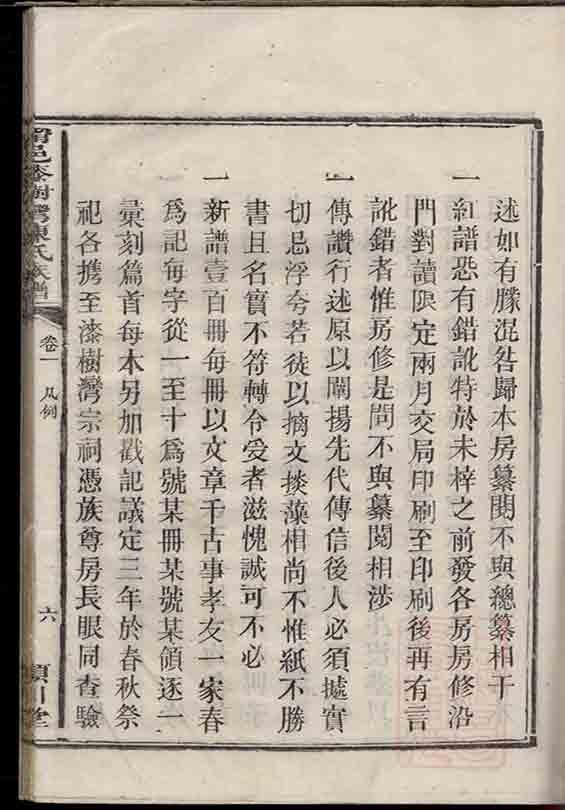 述如有朦混咎歸本房纂閱不與總纂相干
一紅譜恐有錯訛特於未梓之前發各房房修沿
門對讀限定兩月交局印刷至印刷後再有言
訛錯者惟房修是問不與纂閱相涉
一傳讚行述原以闡揚先代傳信後人必須據實
切忌浮夸若徒以摛文掞藻相尚不惟紙不勝
書且名實不符轉令受者滋愧誠可不必
一新譜壹百冊每冊以文章千古事孝友一家春
為記每字從一至十為號某冊某號某領逐一
彙刻篇首每本另加戳記議定三年於春秋祭
祀各攜至漆樹灣宗祠憑族尊房長眼同查驗
邑漆樹灣陳氏族譜
卷一 凡例
六
川堂